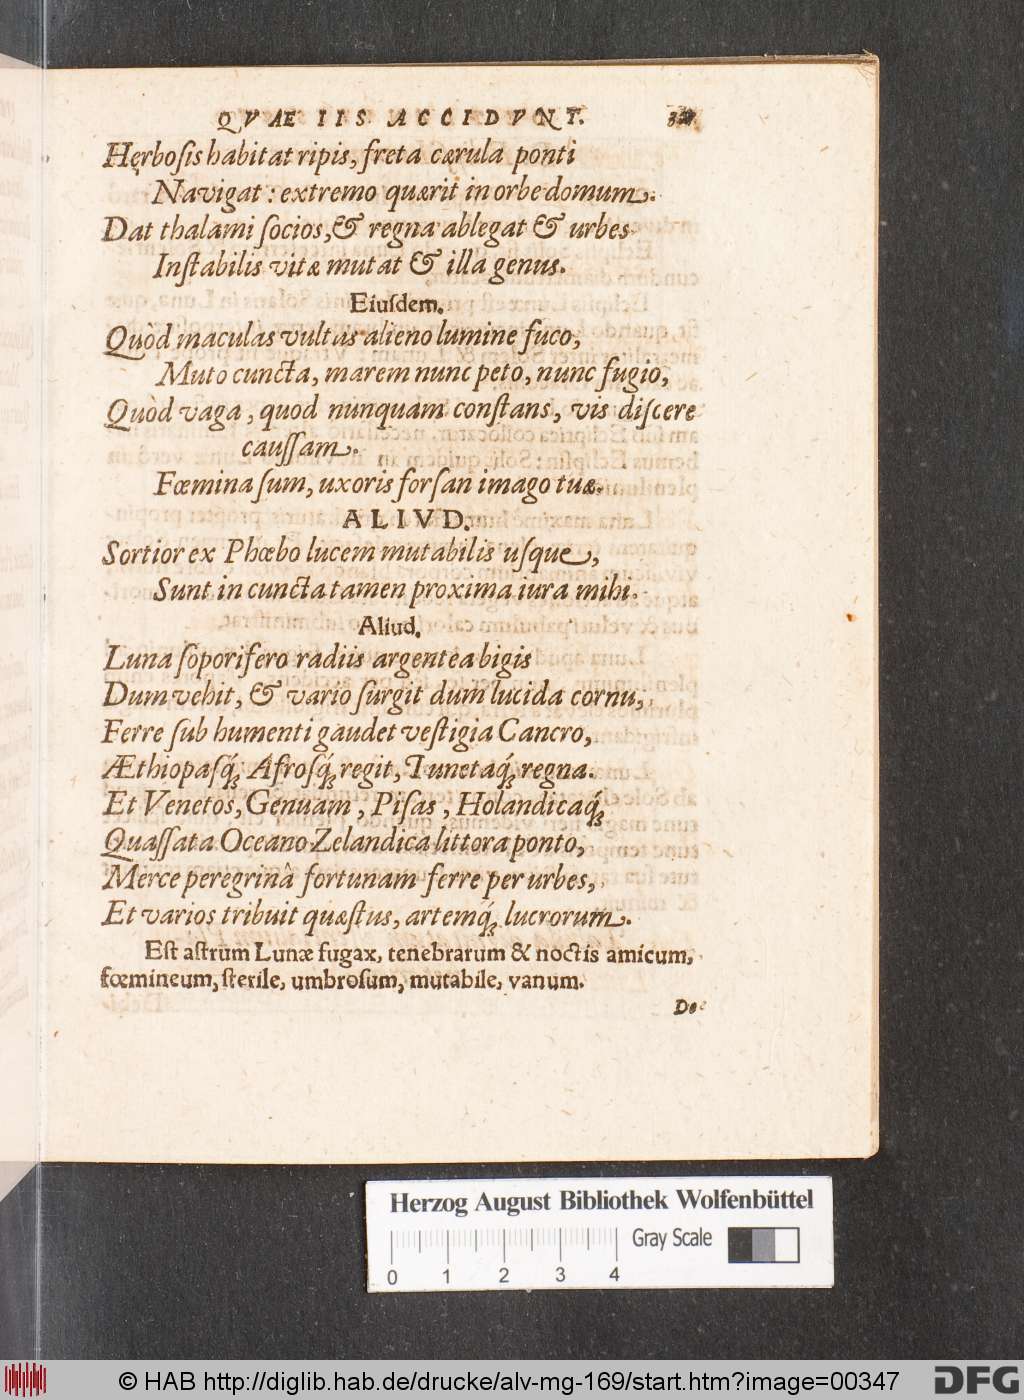 QVAE IIS ACCIDVNT.
Hęrboſis habitat ripis, freta cærula ponti
Navigat: extremo quærit in orbe domum.
Dat thalami ſocios, & regna ablegat & urbes
Inſtabilis vitæ mutat & illa genus.
Eiuſdem.
Quòd maculas vultus alieno lumine fuco,
Muto cuncta, marem nunc peto, nunc fugio,
Quòd vaga, quod nunquam conſtans, vis diſcere
cauſſam.
Fœmina ſum, uxoris forſan imago tuæ.
ALIVD.
Sortior ex Phœbo lucem mutabilis uſque,
Sunt in cuncta tamen proxima iura mihi.
Aliud.
Luna ſoporifero radiis argentea bigis
Dum vehit, & vario ſurgit dum lucida cornu,
Ferre ſub humenti gaudet veſtigia Cancro,
Æthiopaſq́; Afroſq́; regit, Tunetaq́; regna.
Et Venetos, Genuam, Piſas, Holandicaq́;
Quaſſata Oceano Zelandica littora ponto,
Merce peregrinâ fortunam ferre per urbes,
Et varios tribuit quæſtus, artemq́; lucrorum.
Eſt aſtrum Lunæ fugax, tenebrarum & noctis amicum,
fœmineum, ſterile, umbroſum, mutabile, vanum.
De
Herzog August Bibliothek Wolfenbüttel
Gray Scale
0 1 2 3 4
© HAB http://diglib.hab.de/drucke/alv-mg-169/start.htm?image=00347
DFG